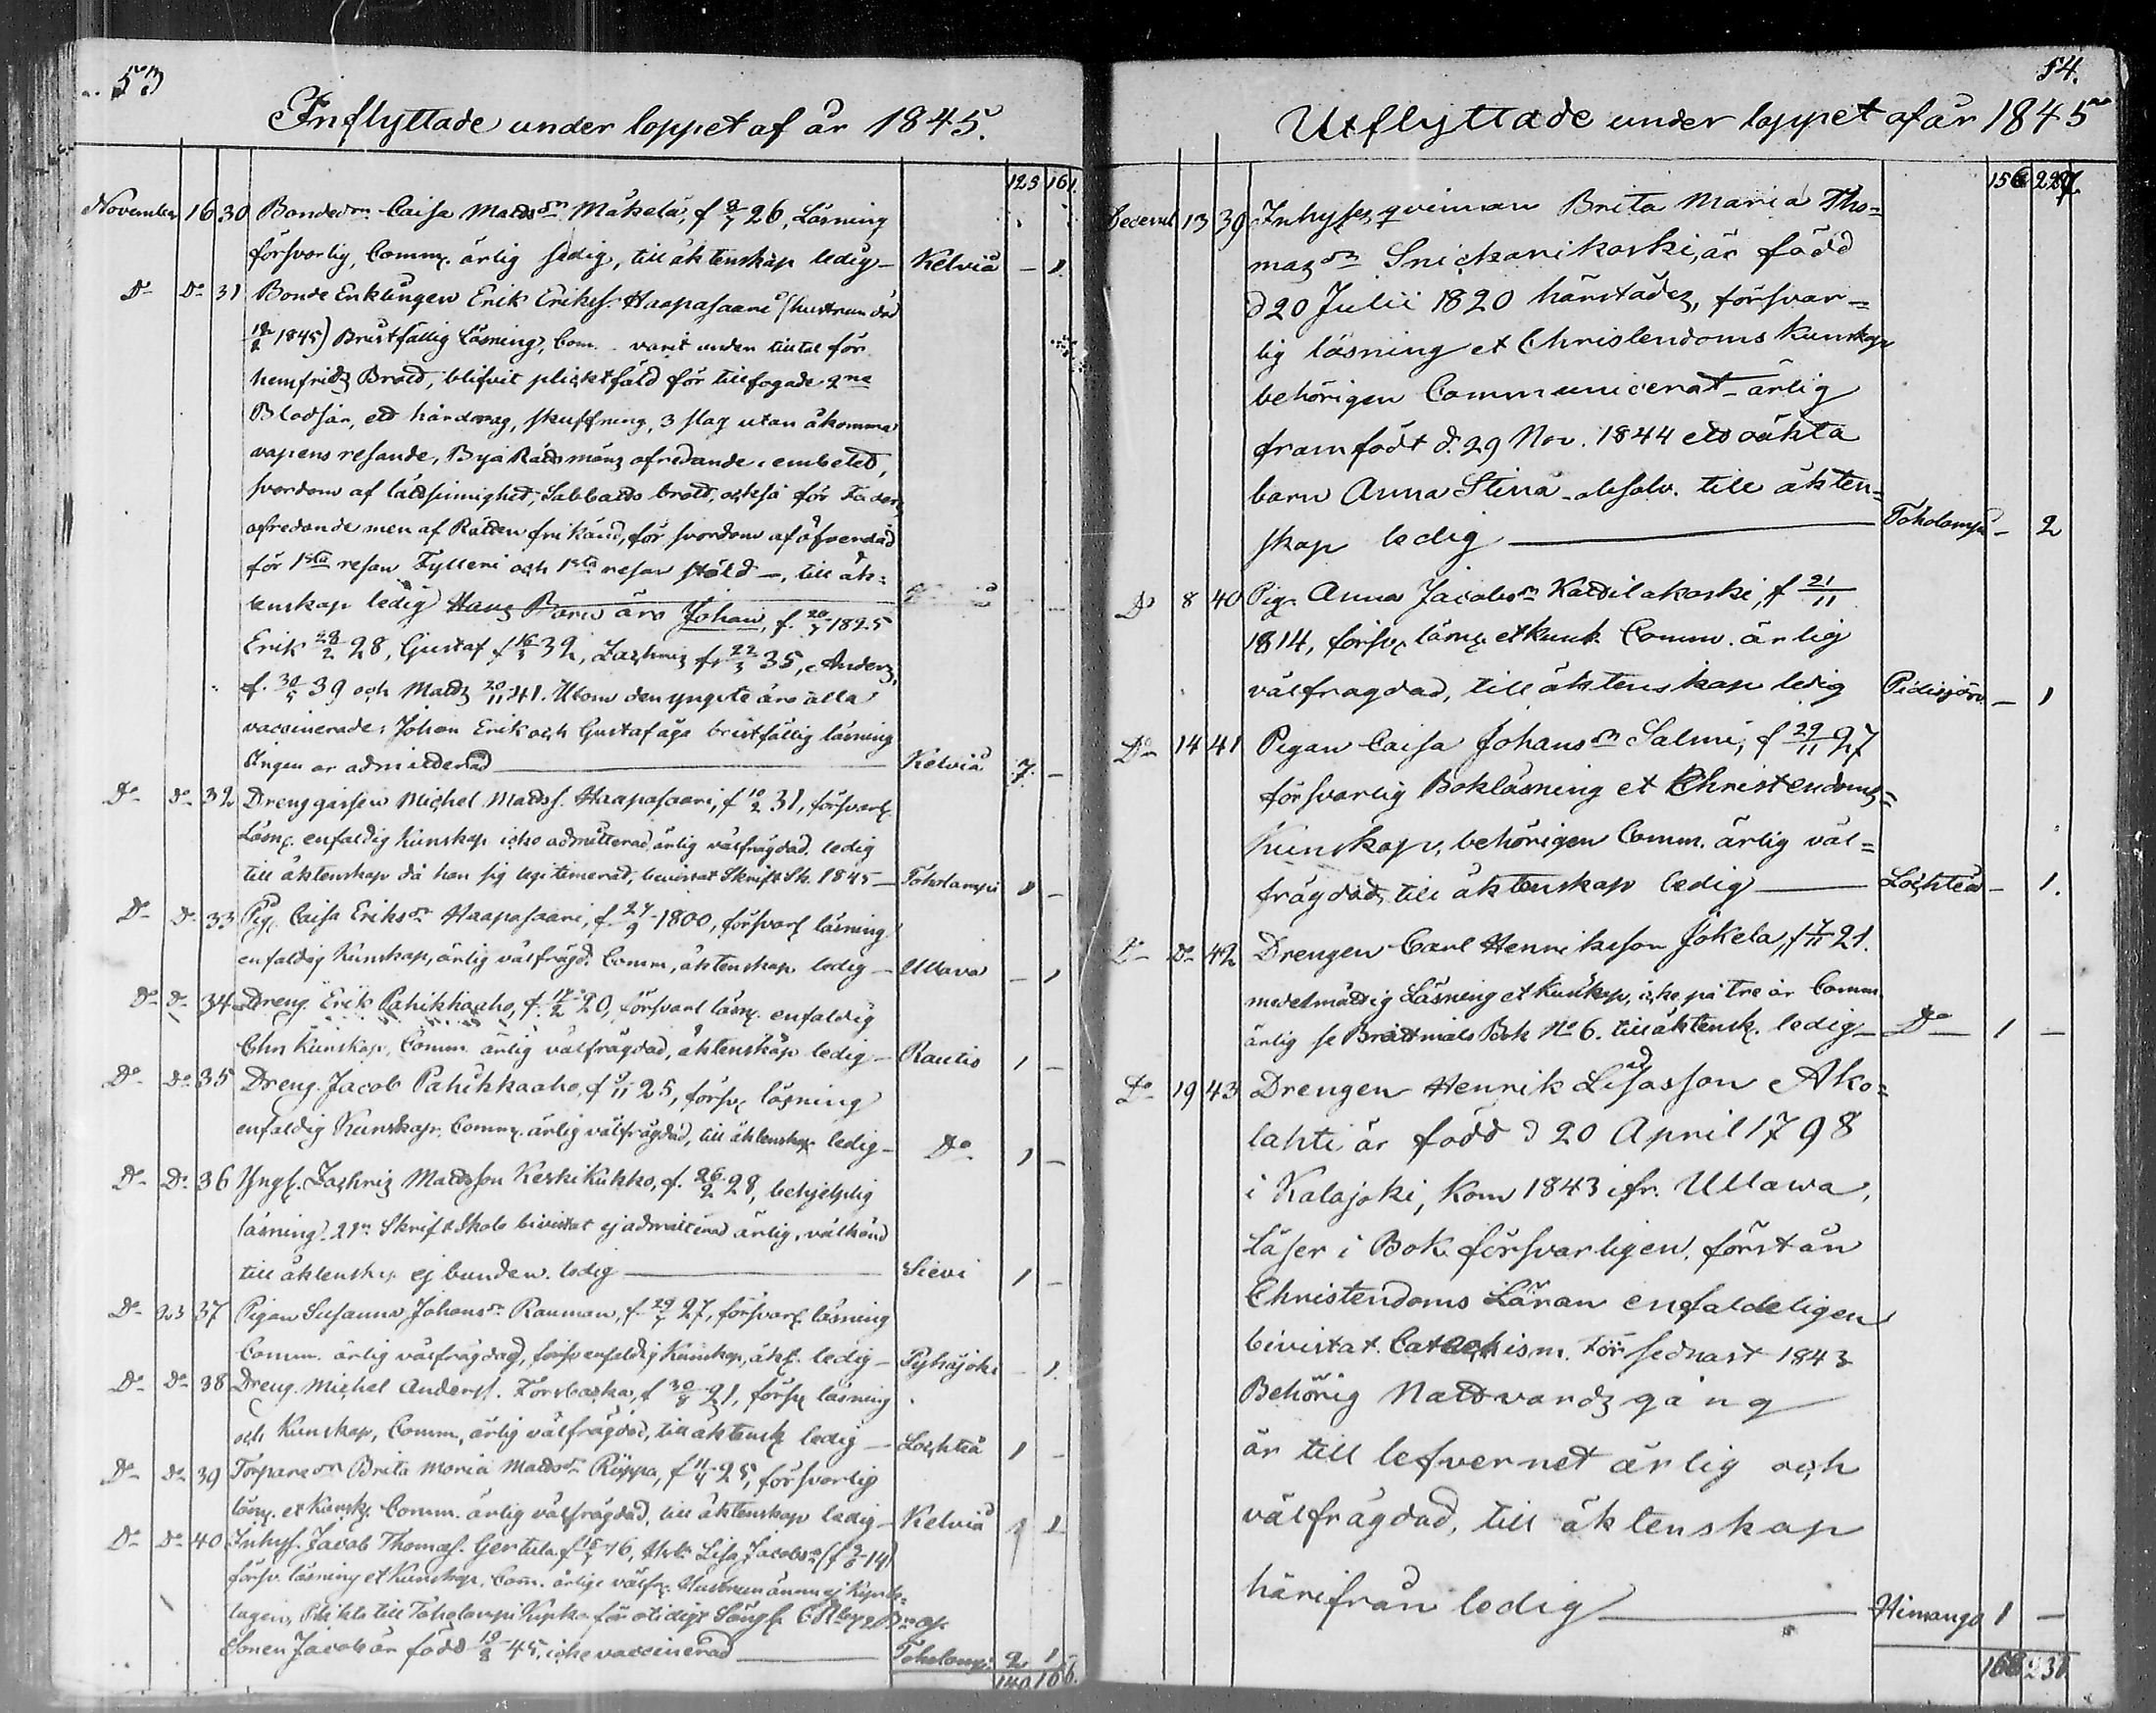 53
Inflyttade under loppet af år 1845.
125 161.
November 16 30 Bondedr Caisa Mattsdr Mäkelä, f 8/7 26, Läsning
försvarlig, Comm. ärlig sedig, till äktenskap ledig — Kelviå — 1.
Do Do 31 Bonde Enklingen Erik Erikss. Haapasaari (hustrun död
1845) Bristfällig läsning, Com. varit under tilltal för
hemfridz Brott, blifvit pliktfäld för tillfogade 2ne
Blodsår, ett hårdrag, skuffning, 3 slag utan åkomma
vapens resande, Byä Rådsmänz ofredande i embetet,
svordom af lättsinnighet, Sabbats brott, också för Faders
ofredande men af Rätten frikänd, för svordom af öfverdåd
för 1sta resan Fylleri och 1sta resan stöld —, till äk-
tenskap ledig Hans Barn äro Johan, f. 20/7 1825
Erik 28/2 28, Gustaf f 16/3 32, Zachriz f 22/3 35, Anders,
f. 30/5 39 och Matts 20/11 41. Utom den yngste äro alla
vaccinerade: Johan Erik och Gustaf äga bristfällig läsning
Ingen är admitterad — Kelviå 7. —
Do Do 32 Drenggåssen Michel Mattss. Haapasaari, f 10/2 31, försvarl
Läsn. enfaldig Kunskap icke admitterad, ärlig välfrägdad, ledig
till äktenskap då han sig legitimerat, bevistat Skrift Sk. 1845 — Toholampi 1 —
Do Do 33 Pig. Caisa Eriksdr Haapasaari, f 24/9 1800, försvarl läsning
enfaldig Kunskap, ärlig välfrägd. Comm, äktenskap ledig — Ullava — 1
Do Do 34 Dreng. Erik Pahikkaaho, f. 17/2 20, försvarl läsn. enfaldig
Chr Kunskap, Comm. ärlig välfrägdad, äktenskap ledig — Rautio 1 —
Do Do 35 Dreng. Jacob Pahikkaaho, f 9/11 25, försv. läsning
enfaldig Kunskap, Comm. ärlig välfrägdad, till äktenskap ledig — Do 1 —
Do Do 36 Yngl. Zachriz Mattsson Keskikukko, f. 26/2 28, behjelplig
läsning. Skrift Skola bivistat ej admitterad ärlig, välkänd
till äktenskap ej bunden. ledig — Sievi 1 —
Do 23 37 Pigan Susanna Johansdr Rauman, f 29/7 27, försvarl läsning
Comm. ärlig välfrägdad, försv enfaldig Kunskap, äkt. ledig — Pyhäjoki — 1.
Do Do 38 Dreng. Michel Anderss. Torsbacka, f 30/8 21, försv läsning
och Kunskap, Comm, ärlig välfrägdad, till äktensk ledig — Lochteå 1 —
Do Do 39 Torparedr Brita Maria Mattsdr Röppa, f 11/4 25, försvarlig
läsn. et Kunsk. Comm. ärlig välfrägdad, till äktenskap ledig — Kelviå 1
Do Do 40 Inhys. Jacob Thomas. Gertula f 16, Hust. Lisa Jacobsdr (f 14)
försv. läsning et Kunskap, Com. ärlige välfr. Hustrun ännu ej Kyrko-
tagen, Plikta till Toholampi Kyrka för otidigt Sängl.
Sonen Jacob är född 19/8 45, icke vaccinerad — Toholampi 2 1
140 166.
54.
Utflyttade under loppet af år 1845
156 227.
Decemb 13 39 Inhyses qvinnan Brita Maria Tho-
mazdr Snickarikoski, är född
d 20 Julii 1820 härstädes, försvar-
lig läsning et Christendoms Kunskap
behörigen Communicerat — ärlig
framfödt d. 29 Nov. 1844 ett oäkta
barn Anna Stina — absolv. till äkten-
skap ledig — Toholampi — 2
Do 8 40 Pig. Anna Jacobsdr Kattilakoski, f 21/11
1814, försv. läsn. et kunk. Comm. ärlig
välfragdad, till äktenskap ledig Pidisjärv. — 1
Do 14 41 Pigan Caisa Johansdr Salmi, f 29/11 27
försvarlig Bokläsning et Christendoms-
Kunskap, behörigen Comm. ärlig väl-
frägdad, till äktenskap ledig — Lochteå — 1.
Do Do 42 Drengen Carl Henriksson Jokela, f 7/11 21.
medelmåttig Läsning et Kunskap, icke på tre år Comm.
ärlig se Brottmåls Bok No 6. till äktensk. ledig — Do 1 —
Do 19 43 Drengen Henrik Lisasson Ako-
lahti är född d 20 April 1798
i Kalajoki, Kom 1843 ifr. Ullawa,
Läser i Bok försvarligen, förstån
Christendoms Läran enfaldeligen
bivistat Catechism. för sednast 1843
Behörig Nattvardz gång
är till lefvernet ärlig och
välfrägdad, till äktenskap
härifrån ledig — Himango 1 —
166 231